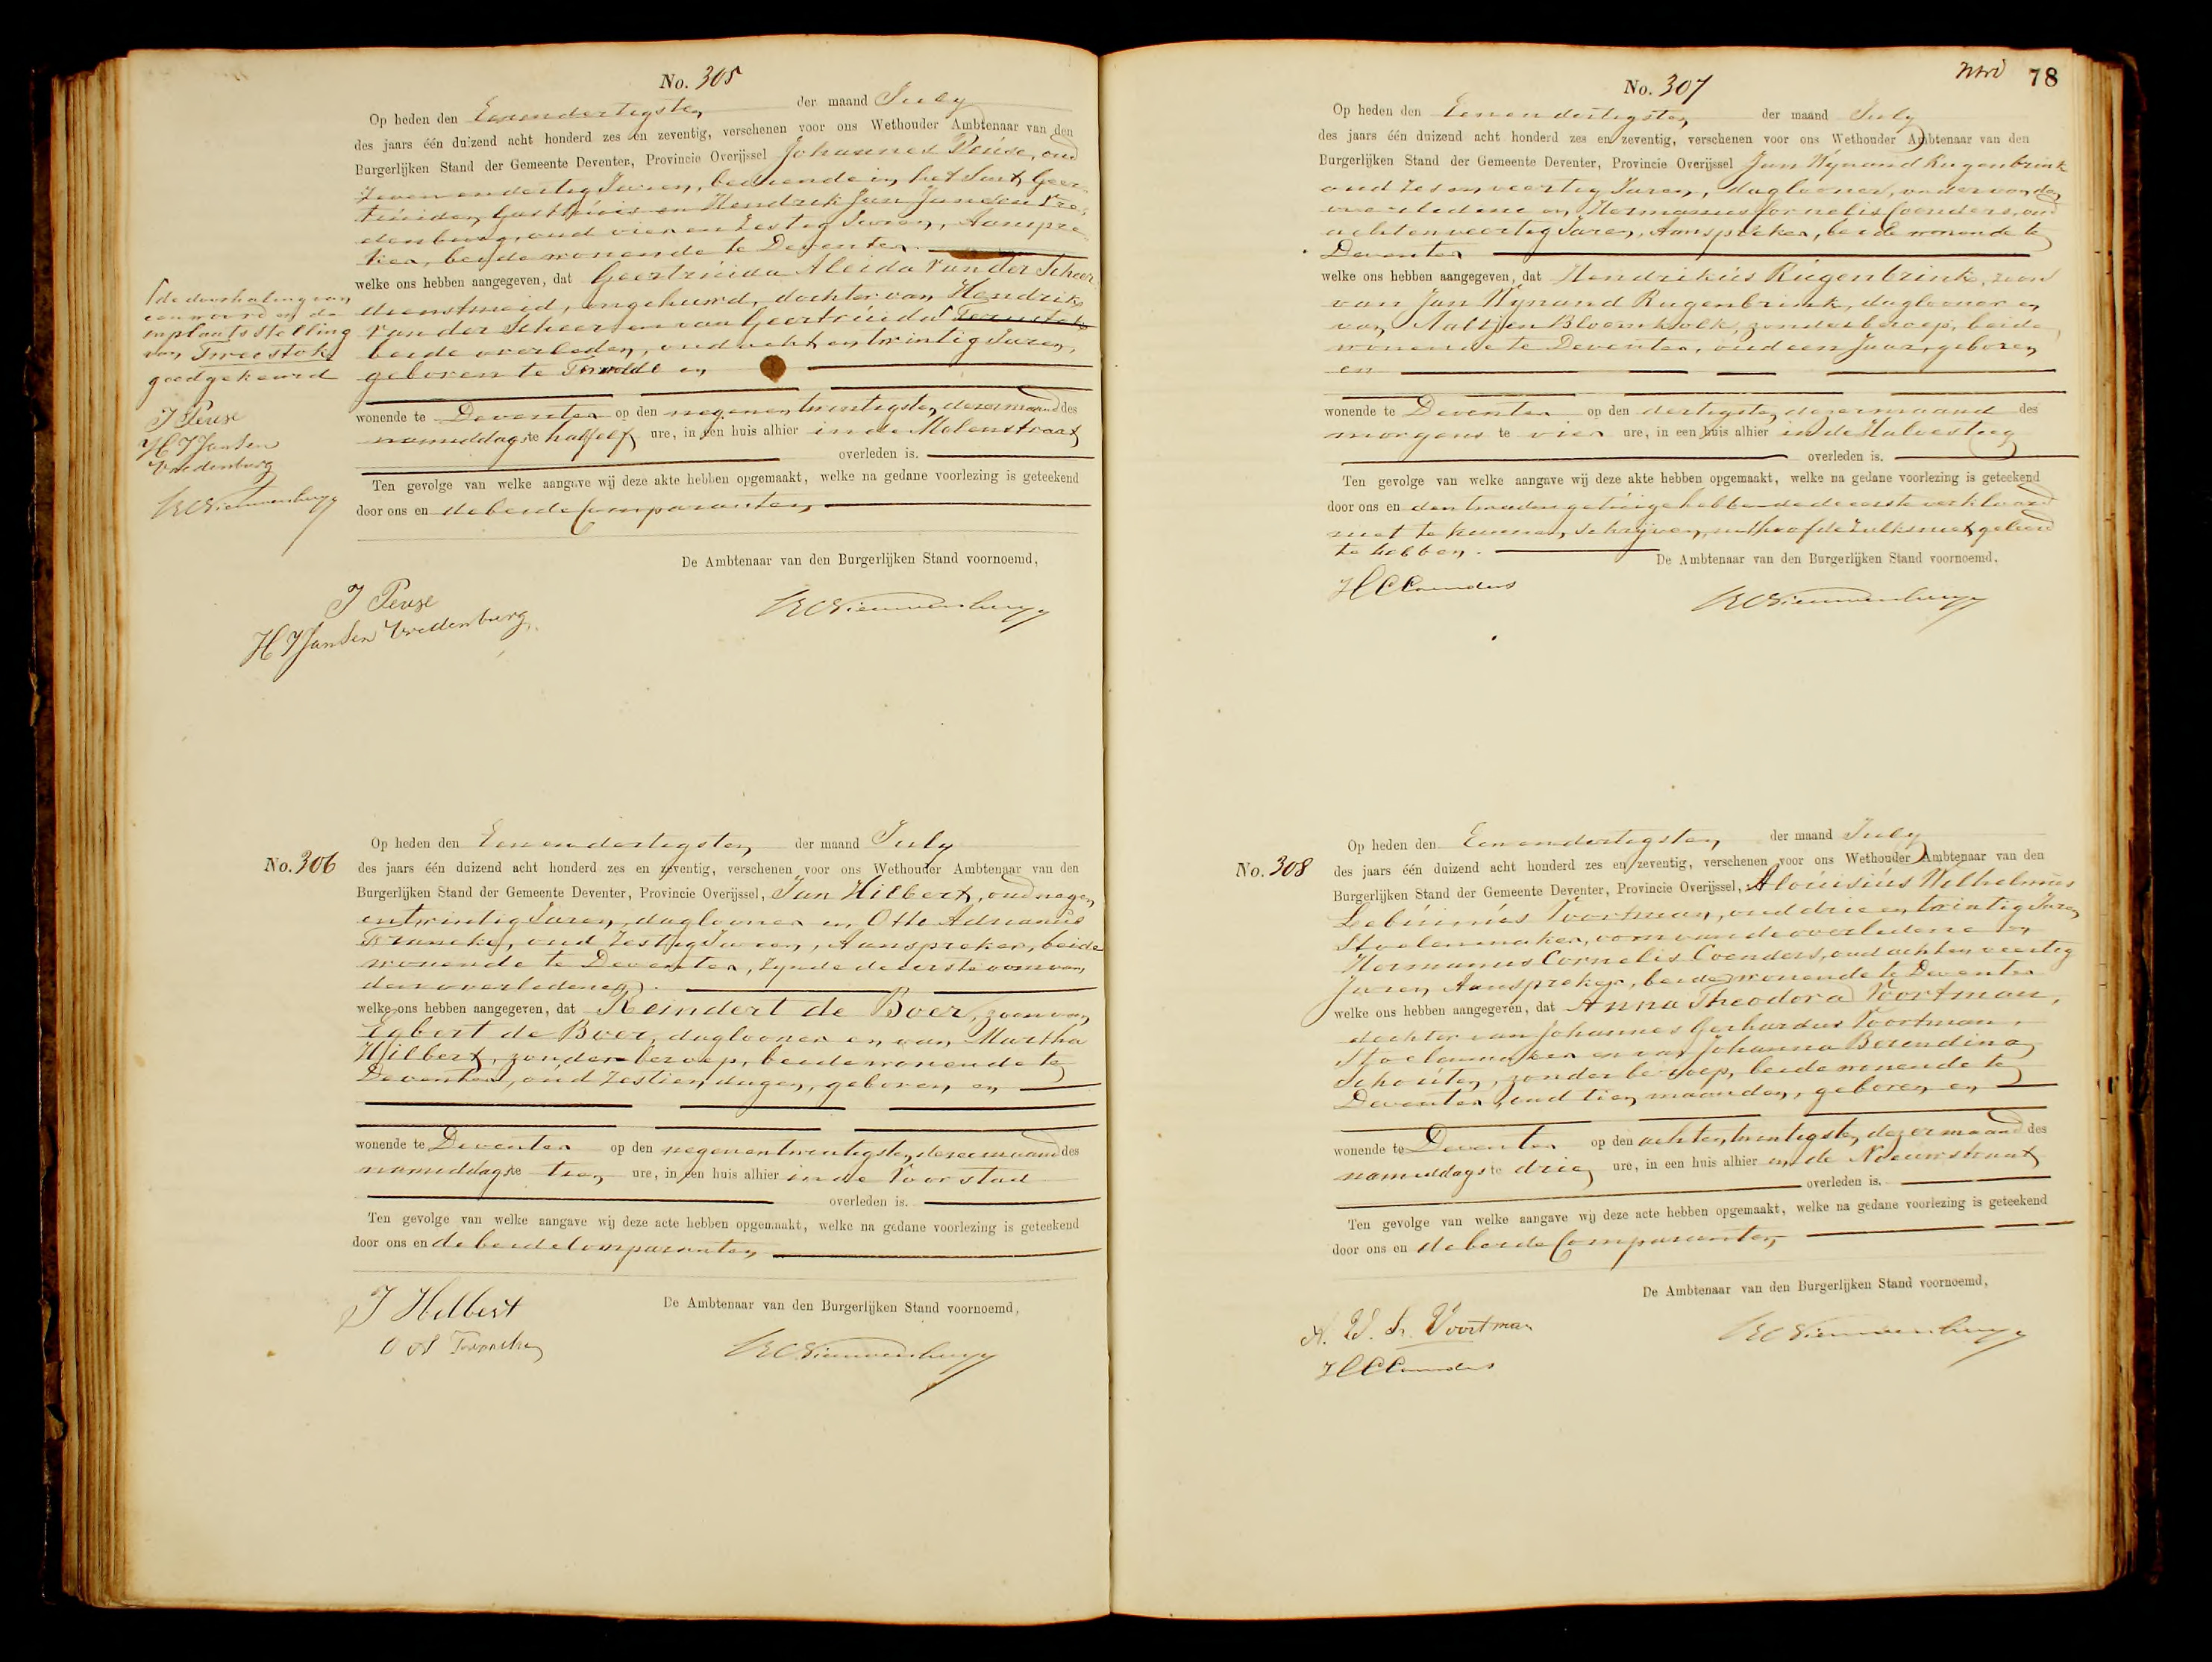 No. 305
Op heden den Eenendertigsten der maand July
des jaars één duizend acht honderd zes en zeventig, verschenen voor ons Wethouder Ambtenaar van den
Burgerlijken Stand der Gemeente Deventer, Provincie Overijssel Johannes Peuse, oud
zeven en dertig Jaren, bediende in het Sint Geer-
truiden Gasthuis en Hendrik Jan Jansen Vre-
denburg, oud vier en zestig Jaren, Aanspre-
ker, beide wonende te Deventer
welke ons hebben aangegeven, dat Geertruida Aleida Van der Scheer
dienstmeid, ongehuwd, dochter van Hendrik
Van der Scheer en van Geertruida
beide overleden, oud acht en twintig Jaren,
geboren te Terwolde en
wonende te Deventer op den negenentwintigsten dezer maand des
namiddags te half elf ure, in een huis alhier in de Molenstraat
overleden is.
Ten gevolge van welke aangave wij deze akte hebben opgemaakt, welke na gedane voorlezing is geteekend
door ons en de beide Comparanten
De Ambtenaar van den Burgerlijken Stand voornoemd,
J Peuse
H J Jansen Vredenburg
de doorhaling van
een woord en de
inplaatsstelling
van Tweestok
goedgekeurd
J Peuse
H J Jansen
Vredenburg
No. 306
Op heden den Eenendertigsten der maand July
des jaars één duizend acht honderd zes en zeventig, verschenen voor ons Wethouder Ambtenaar van den
Burgerlijken Stand der Gemeente Deventer, Provincie Overijssel, Jan Hilbert, oud negen
entwintig Jaren, daglooner en Otto Adrianus
Francke, oud zestig Jaren, Aanspreker, beide
wonende te Deventer, zynde de eerste oom van
den overledenen.
welke ons hebben aangegeven, dat Reindert de Boer, zoon van
Egbert de Boer, daglooner en van Martha
Hilbert, zonder beroep, beide wonende te
Deventer, oud zestien dagen, geboren en
wonende te Deventer op den negenentwintigsten dezer maand des
namiddags te tien ure, in een huis alhier in de Voorstad
overleden is.
Ten gevolge van welke aangave wij deze acte hebben opgemaakt, welke na gedane voorlezing is geteekend
door ons en de beide Comparanten
De Ambtenaar van den Burgerlijken Stand voornoemd,
J Hilbert
O A Francke
78
No. 307
Op heden den Eenendertigsten der maand July
des jaars één duizend acht honderd zes en zeventig, verschenen voor ons Wethouder Ambtenaar van den
Burgerlijken Stand der Gemeente Deventer, Provincie Overijssel Jan Wynand Rugenbrink
oud zes en veertig Jaren, daglooner, vader van den
overledene en Hermanus Cornelis Coenders, oud
achtenveertig Jaren, Aanspreker, beide wonende te
Deventer
welke ons hebben aangegeven, dat Hendrikus Rugenbrink, zoon
van Jan Wynand Rugenbrink, daglooner en
van Aaltjen Bloemkolk, zonder beroep, beide
wonende te Deventer, oud een Jaar, geboren
en
wonende te Deventer op den dertigsten dezer maand des
morgens te vier ure, in een huis alhier in de Halvesteeg
overleden is.
Ten gevolge van welke aangave wij deze akte hebben opgemaakt, welke na gedane voorlezing is geteekend
door ons en den tweeden getuige hebbende de eerste verklaard
niet te kunnen schrijven, uit hoofde zulks niet geleerd
te hebben.
De Ambtenaar van den Burgerlijken Stand voornoemd,
H C Coenders
No. 308
Op heden den Eenendertigsten der maand July
des jaars één duizend acht honderd zes en zeventig, verschenen voor ons Wethouder Ambtenaar van den
Burgerlijken Stand der Gemeente Deventer, Provincie Overijssel, Alouisius Wilhelmus
Lebuinus Voortman, oud drie en twintig Jaren
Stoelenmaker, oom van de overledene en
Hermanus Cornelis Coenders, oud achten veertig
Jaren, Aanspreker, beide wonende te Deventer
welke ons hebben aangegeven, dat Anna Theodora Voortman,
dochter van Johannes Gerhardus Voortman,
Stoelenmaker en van Johanna Berendina
Schouten, zonder beroep, beide wonende te
Deventer, oud tien maanden, geboren en
wonende te Deventer op den achtentwintigsten dezer maand des
namiddags te drie ure, in een huis alhier in de Nieuwstraat
overleden is.
Ten gevolge van welke aangave wij deze acte hebben opgemaakt, welke na gedane voorlezing is geteekend
door ons en de beide Comparanten
De Ambtenaar van den Burgerlijken Stand voornoemd,
A. W. L. Voortman
H C Coenders